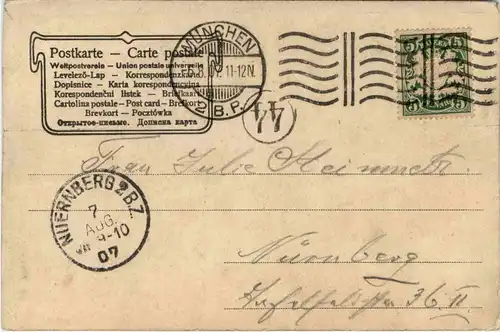 Postkarte — Carte postale
Weltpostverein — Union postale universelle
Levelező-Lap — Korrespondenzkarte
Dopisnice — Karta korespondencyjna
Korespondenční lístek — Briefkaart
Cartolina postale — Post card — Brefkort
Brevkort — Pocztówka
Открытое письмо. Дописна карта
MÜNCHEN
11-12N.
2 B.P.
44
5 5
Frau Julie Steinmetz
NUERNBERG 2 B.Z.
7
AUG.
9-10
07
Nürnberg
36 II